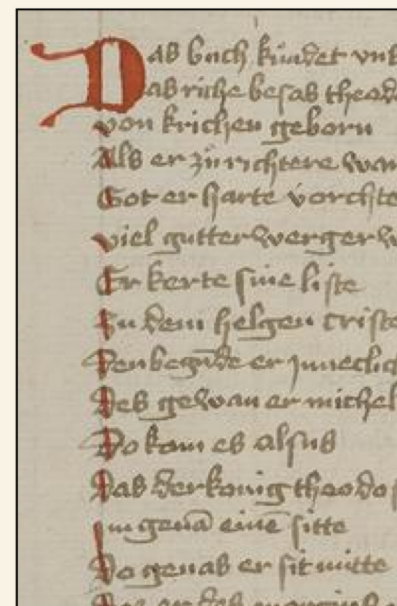 Das buch kündet vnß
Das riche besas theod
von krichen geborn
Als er zü richtere war
Got er harte vorchte
viel gutter werger w
Er kerte sine liste
Zu dem helgen criste
Den begūde er inneclich
Des gewan er michel
Do kam es alsus
Das der konig theodos
Im genā einē sitte
Do genas er sit mitte